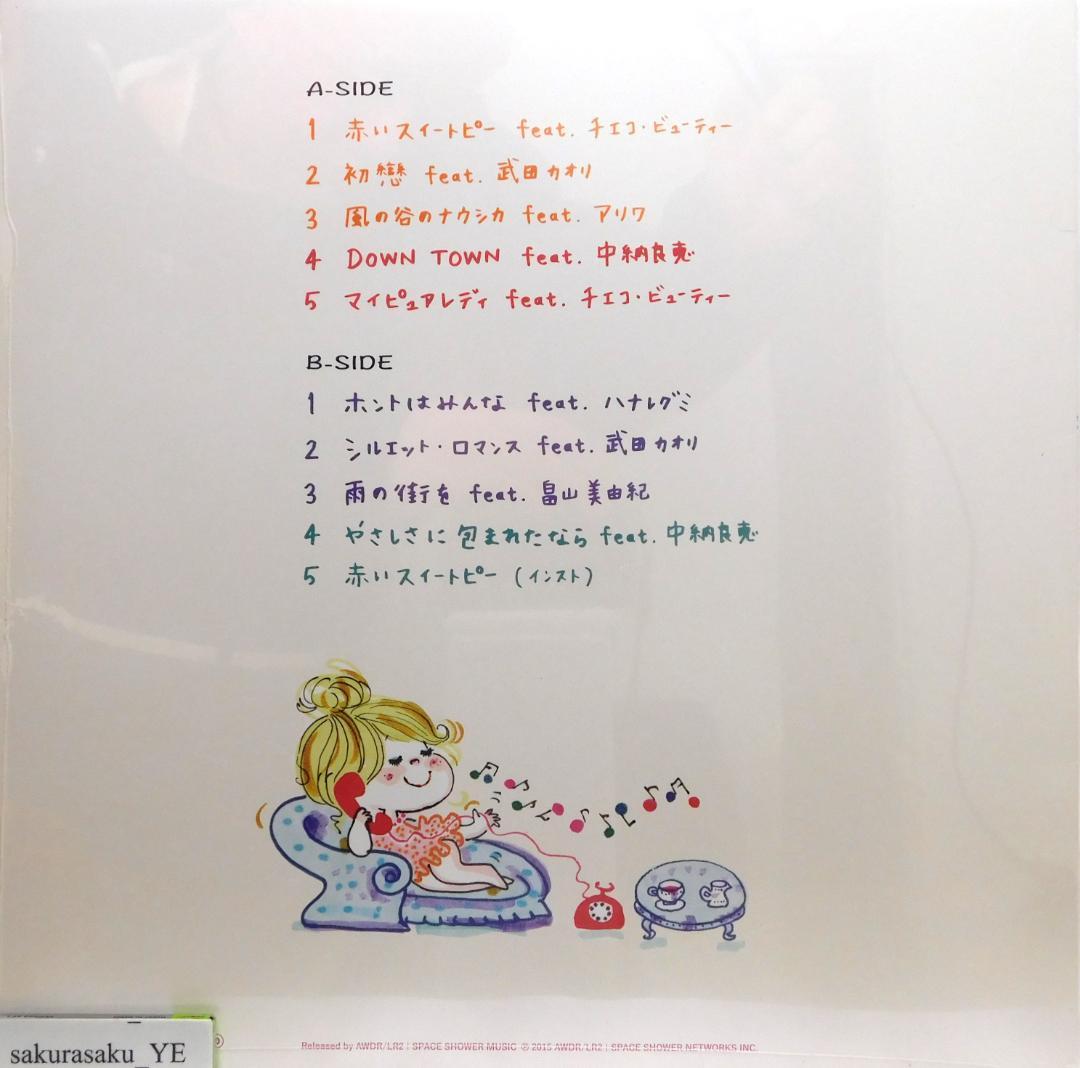 A-SIDE
1 赤いスイートピー feat. チエコ・ビューティー
2 初戀 feat. 武田カオリ
3 風の谷のナウシカ feat. アリワ
4 DOWN TOWN feat. 中納良恵
5 マイピュアレディ feat. チエコ・ビューティー
B-SIDE
1 ホントはみんな feat. ハナレグミ
2 シルエット・ロマンス feat. 武田カオリ
3 雨の街を feat. 畠山美由紀
4 やさしさに包まれたなら feat. 中納良恵
5 赤いスイートピー (インスト)
Released by AWDR/LR2 | SPACE SHOWER MUSIC ℗ 2015 AWDR/LR2 | SPACE SHOWER NETWORKS INC.
sakurasaku_YE